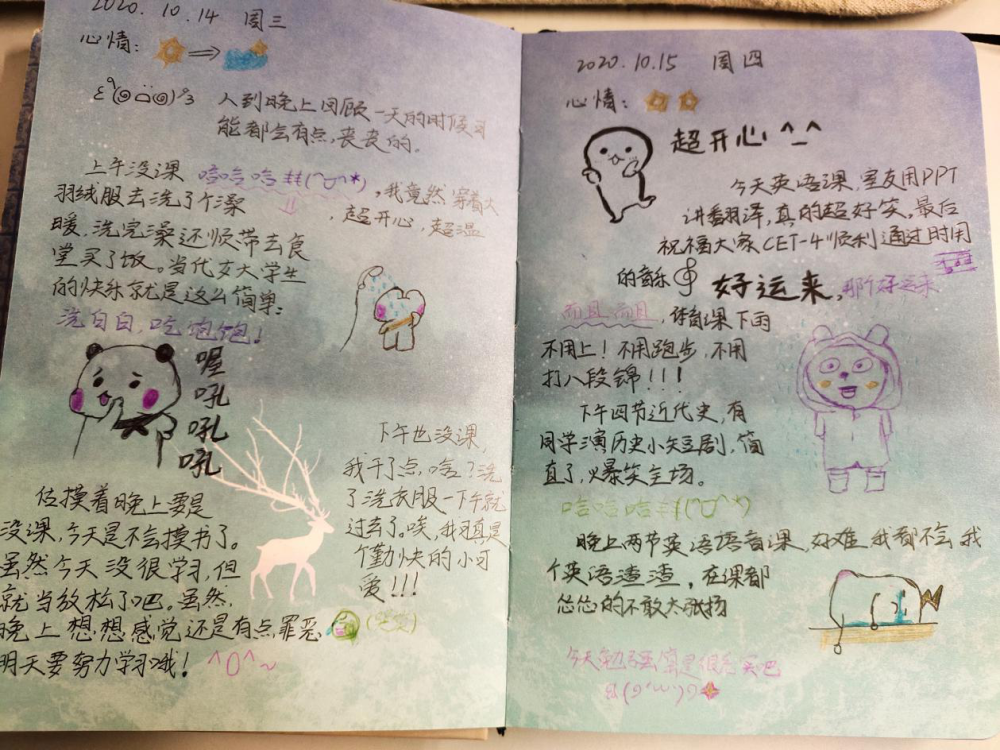 2020.10.14 周三
心情：
人到晚上回顾一天的时候可
能都会有点，丧丧的。
上午没课 哈哈哈 ，我竟然穿着大
羽绒服去洗了个澡，超开心，超温
暖，洗完澡还顺带去食
堂买了饭。当代女大学生
的快乐就是这么简单：
洗白白，吃饱饱！
喔
吼
吼
吼
下午也没课，
我干了点，啥？洗
了洗衣服一下午就
过去了。唉，我可真是
个勤快的小可
爱!!!
估摸着晚上要是
没课，今天是不会摸书了。
虽然今天没很学习，但
就当放松了吧。虽然，
晚上想想感觉还是有点罪恶
明天要努力学习哦！ ^O^~
2020.10.15 周四
心情：
超开心 ^_^
今天英语课，室友用PPT
讲翻译，真的超好笑。最后
祝福大家CET-4顺利通过时用
的音乐 好运来，那个好运来
而且而且，体育课下雨
不用上！不用跑步，不用
打八段锦!!!
下午四节近代史，有
同学演历史小短剧，简
直了，爆笑全场。
哈哈哈
晚上两节英语语音课，好难 我都不会 我
个英语渣渣，在课都
怂怂的不敢大张扬
今天 算是很充实吧